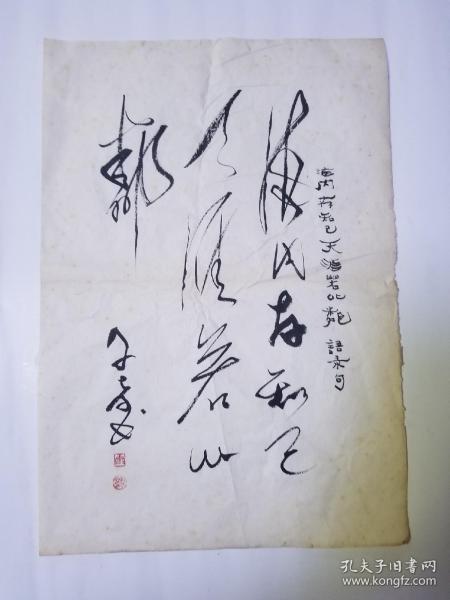 海内存知己天涯若比鄰 語录句
海内存知己
天涯若比
鄰
孔夫子旧书网
www.kongfz.com